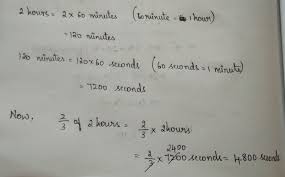 2 hours = 2 x 60 minutes (60 minute = 1 hour)
= 120 minutes
120 minutes = 120 x 60 seconds (60 seconds = 1 minute)
= 7200 seconds
Now, 2/3 of 2 hours = 2/3 x 2 hours
2400
= 2/3 x 7200 seconds = 4800 seconds